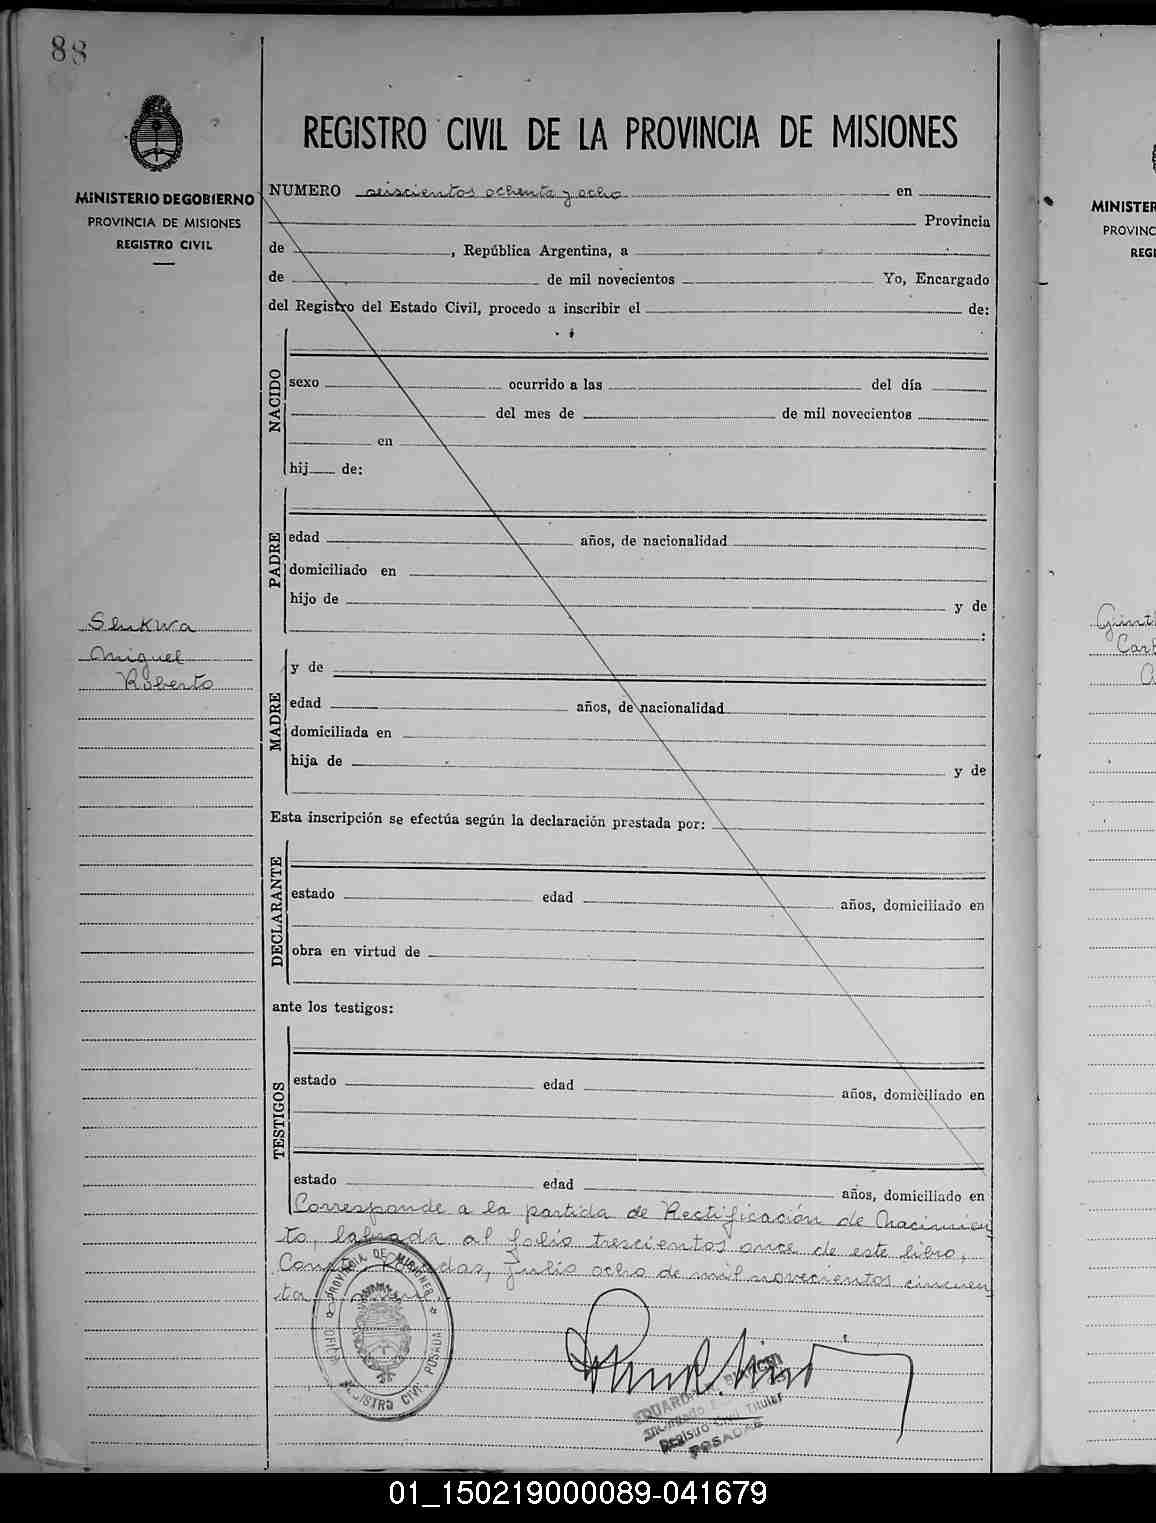 88
MINISTERIO DE GOBIERNO
PROVINCIA DE MISIONES
REGISTRO CIVIL
Miguel
Roberto
REGISTRO CIVIL DE LA PROVINCIA DE MISIONES
NUMERO seiscientos ochenta y ocho en
Provincia
de , República Argentina, a
de de mil novecientos Yo, Encargado
del Registro del Estado Civil, procedo a inscribir el de:
NACIDO
sexo ocurrido a las del día
del mes de de mil novecientos
en
hij de:
PADRE
edad años, de nacionalidad
domiciliado en
hijo de y de
:
MADRE
y de
edad años, de nacionalidad
domiciliada en
hija de y de
Esta inscripción se efectúa según la declaración prestada por:
DECLARANTE
estado edad años, domiciliado en
obra en virtud de
ante los testigos:
TESTIGOS
estado edad años, domiciliado en
estado edad años, domiciliado en
Corresponde a la partida de Rectificación de Nacimien
to, labrada al folio trescientos once de este libro,
Julio ocho de mil novecientos cincuen
ta
PROVINCIA DE MISIONES
REGISTRO CIVIL POSADAS
EDUARDO
Encargado
Registro Civil Titular
POSADAS
MINISTER
PROVINC
REGI
01_150219000089-041679